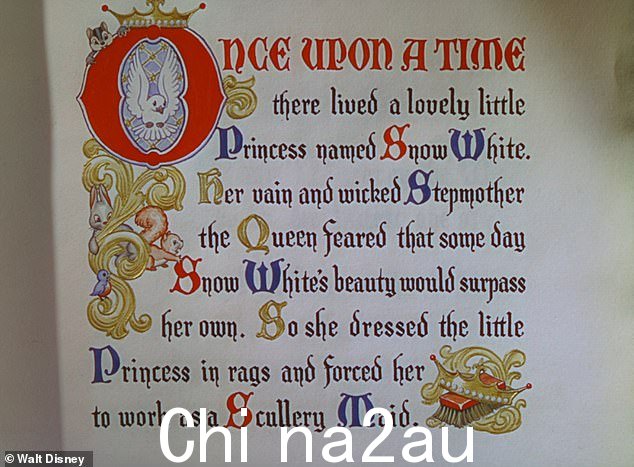 ONCE UPON A TIME
there lived a lovely little
Princess named Snow White.
Her vain and wicked Stepmother
the Queen feared that some day
Snow White's beauty would surpass
her own. So she dressed the little
Princess in rags and forced her
to work as a Scullery Maid.
Chi na2au
© Walt Disney